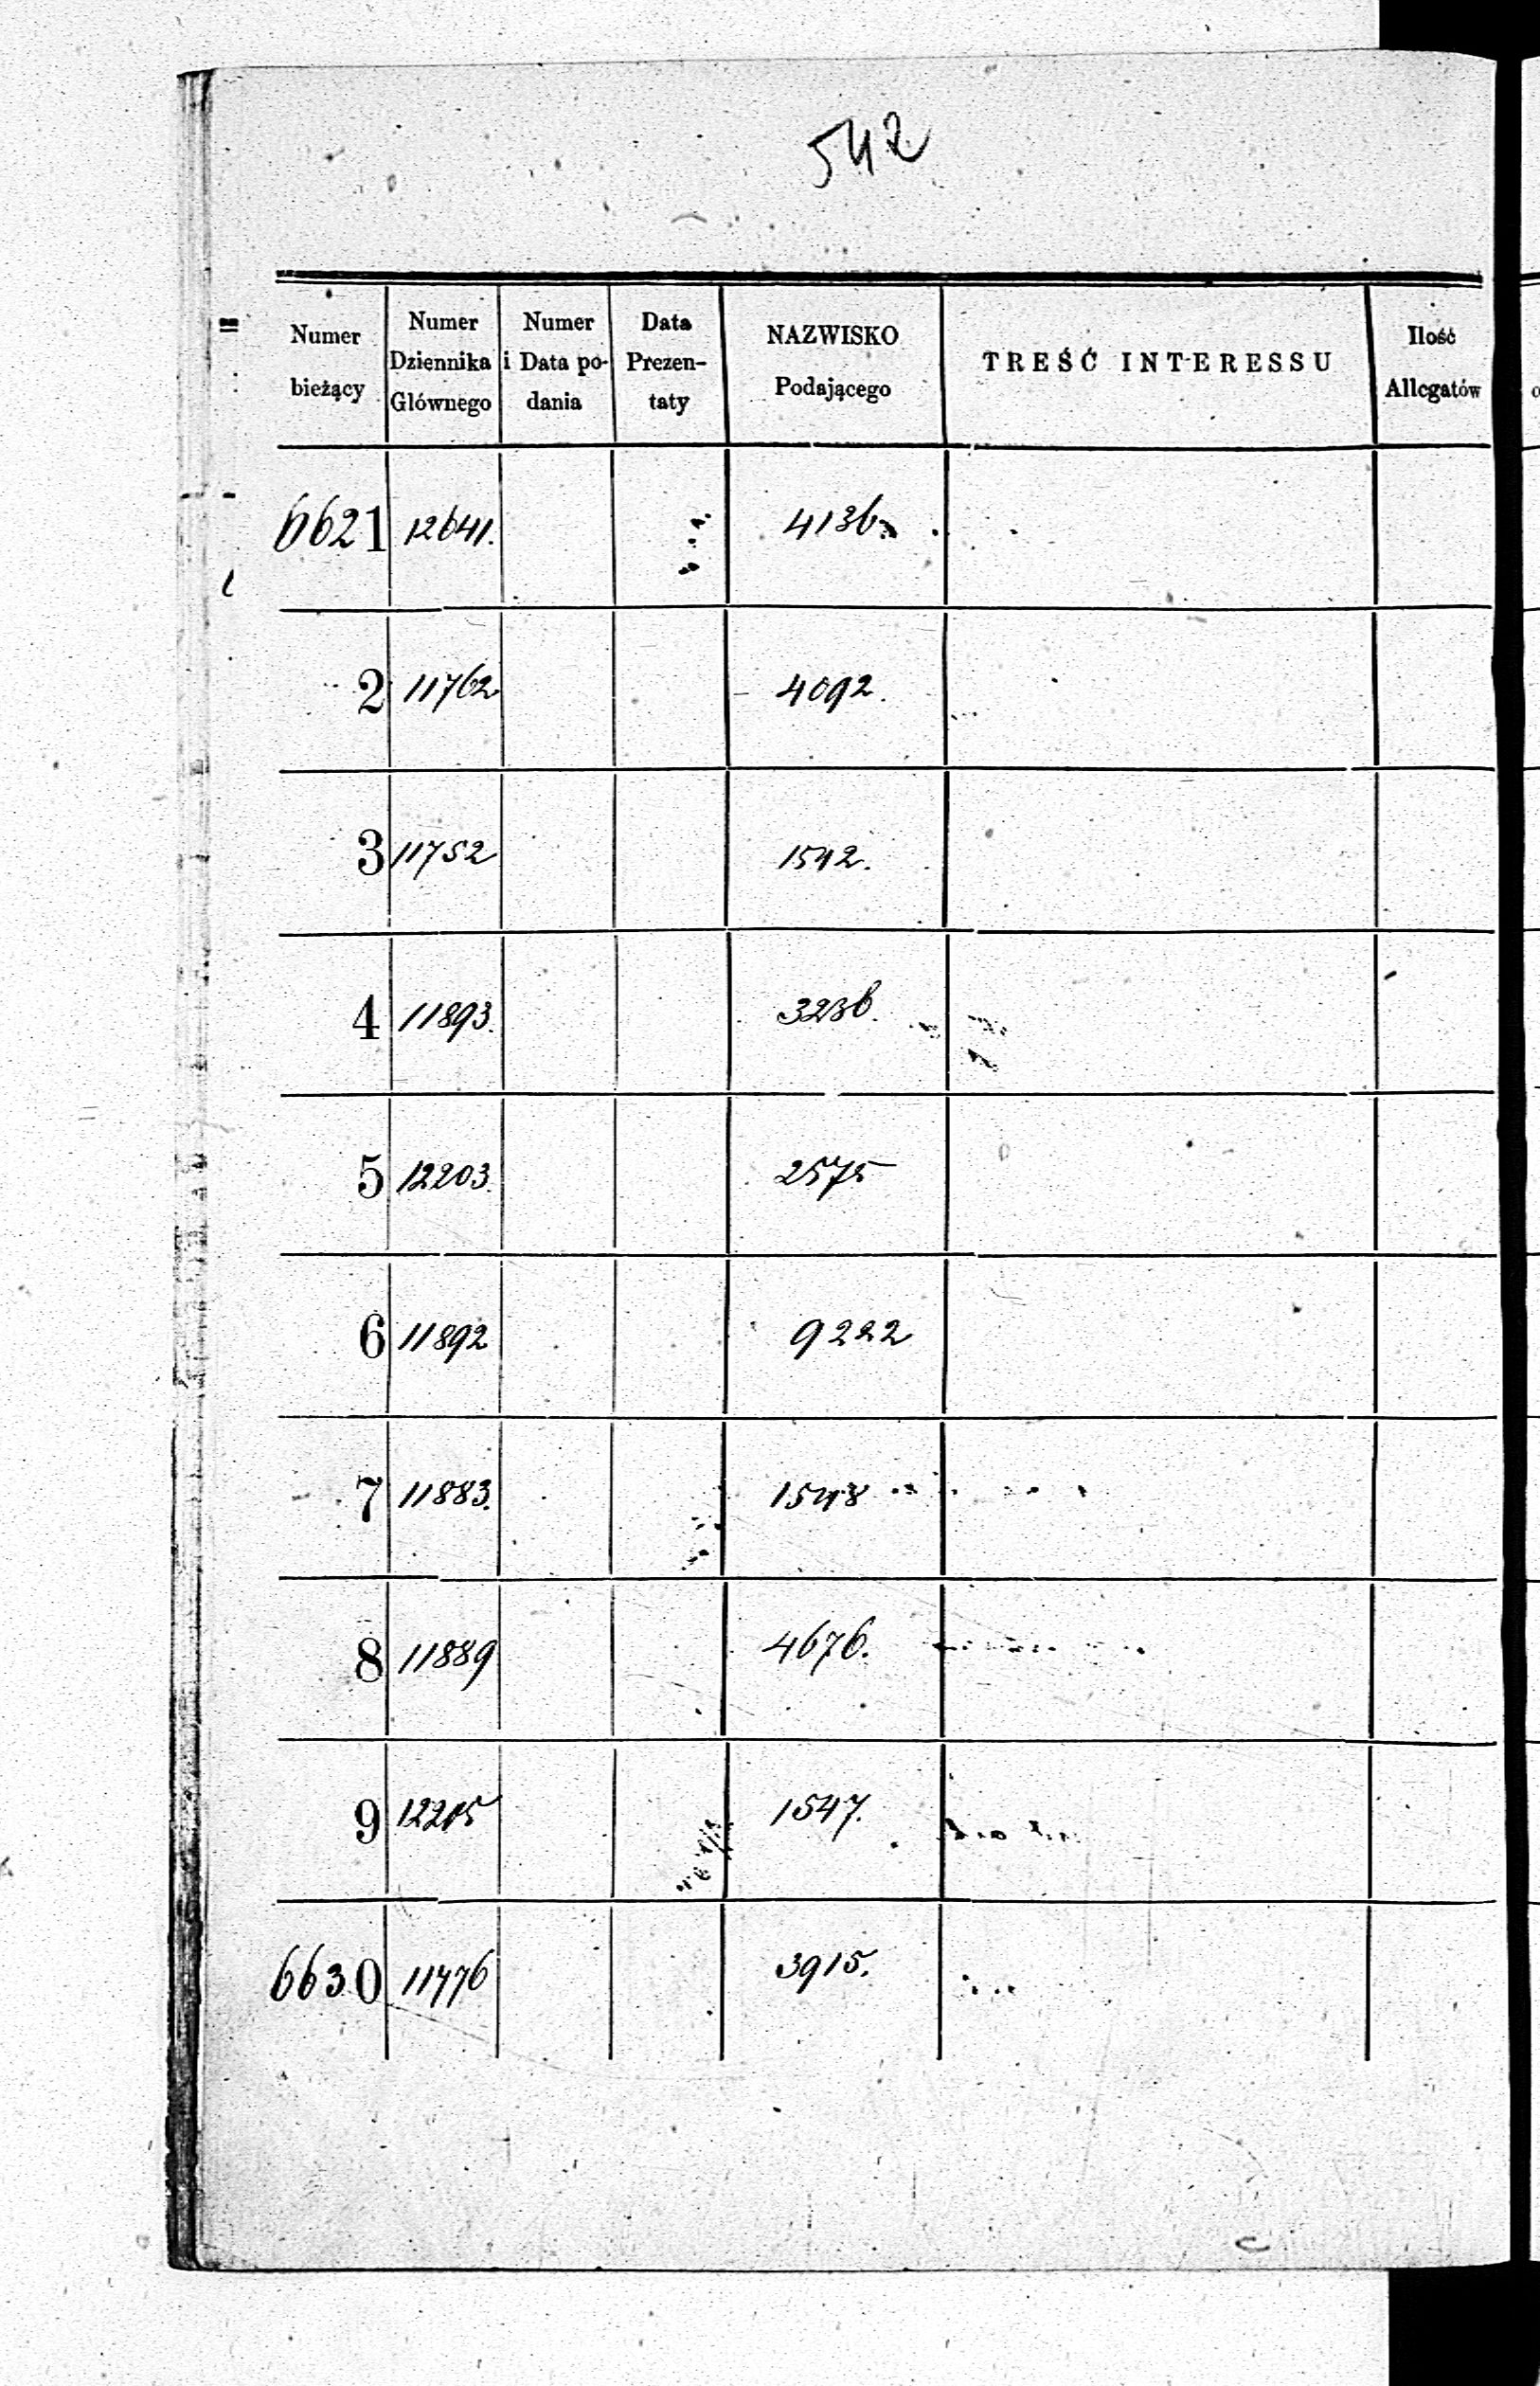 542
Numer bieżący Numer Dziennika Głównego Numer i Data po- dania Data Prezen- taty NAZWISKO Podającego TREŚĆ INTERESSU Ilość Allegatów
6621 12641. 4136
2 11762 4092.
3 11752 1542.
4 11893. 3236.
5 12203. 2575
6 11892 9222
7 11883. 1548
8 11889 4676.
9 12215 1547.
6630 11776 3915.